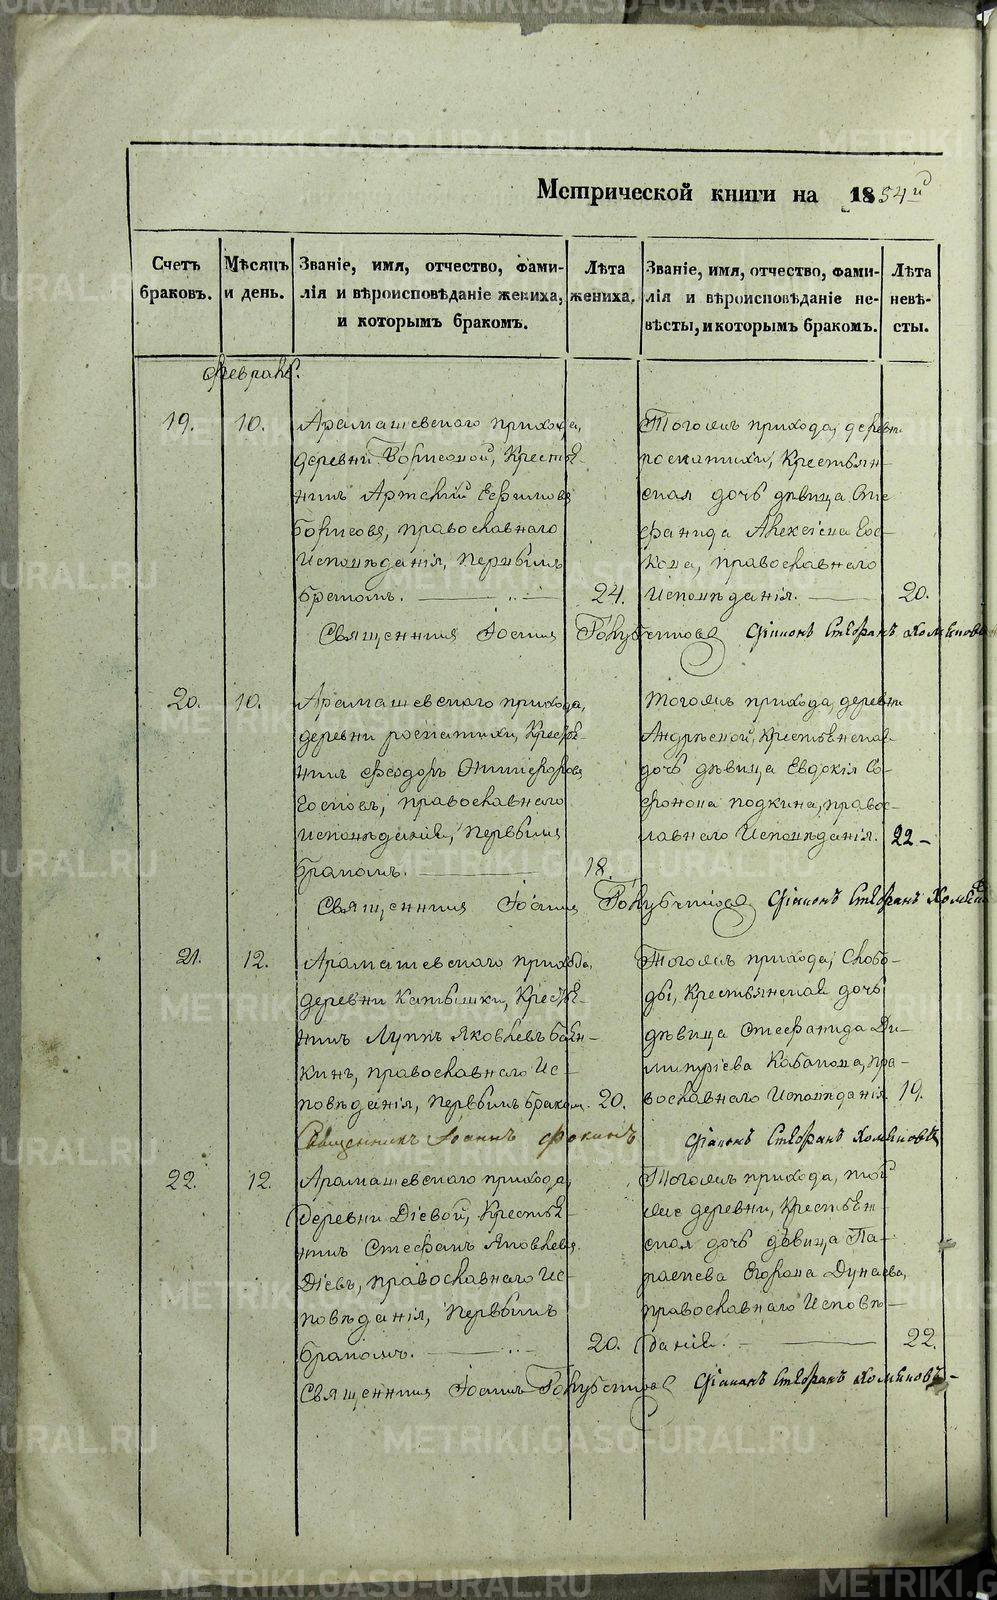 Метрической книги на 1854й
Счетъ браковъ.
Мѣсяцъ и день.
Званіе, имя, отчество, фами-
лія и вѣроисповѣданіе жениха,
и которымъ бракомъ.
Лѣта жениха.
Званіе, имя, отчество, фами-
лія и вѣроисповѣданіе не-
вѣсты, и которымъ бракомъ.
Лѣта невѣ-
сты.
Февраль.
19. 10. Арамашевского прихода,
деревни Борисовой, Крестья-
нинъ
Борисовъ, православнаго
Исповѣданія, Первымъ
Бракомъ. 24.
Тогожъ прихода, деревни
Крестьян-
ская дочь дѣвица Сте-
фанида Алексіева Гос-
кова, православнаго
Исповѣданія. 20.
Священникъ Іоаннъ Голубчиковъ Діаконъ Стефанъ Хомяковъ
20. 10. Арамашевского прихода,
деревни Крестья-
нинъ Феодоръ Никифоровъ
Госковъ, православнаго
Исповѣданія, Первымъ
Бракомъ. 18.
Тогожъ прихода, деревни
Андрѣевой, Крестьянская
дочь дѣвица Евдокія Со-
фронова подкина, право-
славнаго Исповѣданія. 22
Священникъ Іоаннъ Голубчиковъ Діаконъ Стефанъ
21. 12. Арамашевского прихода,
деревни Катышки, Крестья-
нинъ Луппъ Яковлевъ Бабин-
кинъ, православнаго Ис-
повѣданія, Первымъ Браком. 20.
Тогожъ прихода, Слобо-
ды, Крестьянская дочь
дѣвица Стефанида Ди-
митріева Кабакова, пра-
вославнаго Исповѣданія 19.
Священникъ Іоаннъ Фокинъ Діаконъ Стефанъ Хомяковъ
22. 12. Арамашевского прихода,
Деревни Діевой, Крестья-
нинъ Стефанъ Яковлевъ
Діевъ, православнаго Ис-
повѣданія, Первымъ
Бракомъ. 20.
Тогожъ прихода, той
же деревни, Крестьян-
ская дочь дѣвица Па-
раскева Егорова Дунаева,
православнаго Исповѣ-
данія. 22.
Священникъ Іоаннъ Голубчиковъ Діаконъ Стефанъ Хомяковъ
METRIKI.GASO-URAL.RU